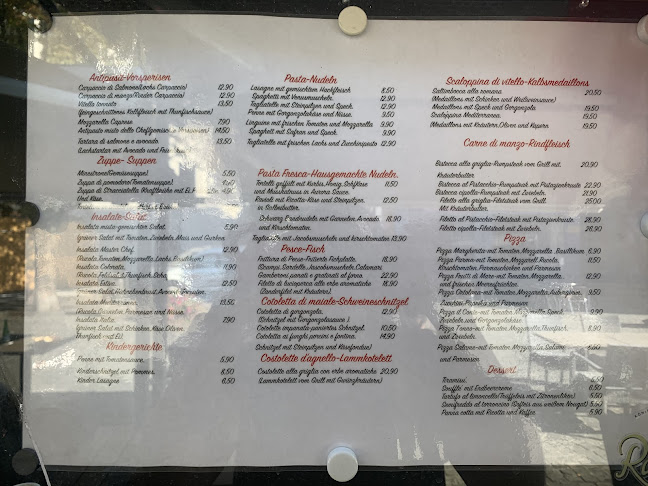 Antipasti-Vorspeisen
Carpaccio di Salmone(Lachs Carpaccio) 12,90
Carpaccio di manzo(Rinder Carpaccio) 12,90
Vitello tonnato 13,50
(feingeschnittenes Kalbfleisch mit Thunfischsauce)
Mozzarella Caprese 7,90
Antipasto misto dello Chef(gemischte Vorspeisen) 14,50
Tartara di salmone e avocado 13,50
(Lachstartar mit Avocado und
Zuppe- Suppen
Minestrone(Gemüsesuppe) 5,50
Zuppa di pomodoro(Tomatensuppe)
Zuppa di Stracciatella (Kraftbrühe mit Ei,
und Käse 4,90
Insalate-Salat
Insalata mista-gemischter Salat 5,90
(grüner Salat mit Tomaten,Zwiebeln,Mais und Gurken
Insalata Mista Chef 12,90
(Rucola,Tomaten,Mozzarella,Lachs,Basilikum)
Insalata Colorata 11,90
(Rucola,Feldsalat,Thunfisch,Schafskäse)
Insalata 12,90
(grüner Salat,Hähnchenbrust,
Insalata 13,50
(Rucola,Garnelen,Parmesan und Nüsse
Insalata Italia 7,90
(grüner Salat mit Schinken,Käse,Oliven
Thunfisch und Ei)
Kindergerichte
Penne mit Tomatensauce 5,90
Kinderschnitzel mit Pommes 8,50
Kinder Lasagne 6,50
Pasta-Nudeln
Lasagne mit gemischtem Hackfleisch 8,50
Spaghetti mit Venusmuscheln 12,90
Tagliatelle mit Steinpilzen und Speck 12,90
Penne mit Gorgonzolakäse und Nüsse 9,50
Linguine mit frischen Tomaten und Mozzarella 9,90
Spaghetti mit Safran und Speck 9,90
Tagliatelle mit frischen Lachs und Zucchinipasta 12,90
Pasta Fresca-Hausgemachte Nudeln
Tortelli gefüllt mit Kürbis,Honig,Schafkäse 11,50
und Muskatnuss in Aurora Sauce
Ravioli mit Ricotta-Käse und Steinpilzen 12,50
in Salbeibutter
Schwarz Excalnudeln mit Garnelen, Avocado 18,90
und Kirschtomaten
Tagliatelle mit Jacobsmuscheln und kirschtomaten 18,90
Pesce-Fisch
Frittura di Pesce-Fritierte Fischplatte, 18,90
Shrimps,Sardelle,Jacobsmuscheln,Calamari
Gamberoni panati e gratinati al forno 22,90
Filetto di branzino alle erbe aromatiche 18,90
mit Kräutern)
Cotoletta di maiale-Schweineschnitzel
Cotoletta di gorgonzola 12,90
(Schnitzel mit Gorgonzolasauce )
Cotoletta impanata paniertes Schnitzel 10,50
Cotoletta ai funghi porcini e fontina 14,90
Schnitzel mit Steinpilzen und Käsefondue)
Costolette d'agnello-Lammkotelett
Costolette alla griglia con erbe aromatiche 20,90
(Lammkotelett vom Grill mit Gewürzkräutern)
Scaloppina di vitello-Kalbsmedaillons
Saltimbocca alla romana 20,50
(Medaillons mit Schinken und Weißweinsauce)
Medaillons mit Speck und Gorgonzola 19,50
Scaloppina Mediterranea 19,50
(Medaillons mit Kräutern,Oliven und Kapern 19,50
Carne di manzo-Rindfleisch
Bistecca alla griglia-Rumpsteak vom Grill mit 20,90
Kräuterbutter
Bistecca al Pistacchio-Rumpsteak mit Pistazienkruste 22,90
Bistecca cipolle-Rumpsteak mit Zwiebeln 22,90
Filetto alla griglia-Filetsteak vom Grill 25,00
Mit Kräuterbutter
Filetto al Pistacchio-Filetsteak mit Pistazienkruste 28,90
Filetto cipolla-Filetsteak mit Zwiebeln 28,90
Pizza
Pizza Margherita-mit Tomaten,Mozzarella, Basilikum 6,90
Pizza Parma-mit Tomaten,Mozzarella,Rucola, 11,50
Kirschtomaten,Parmaschinken und Parmesan
Pizza Frutti di Mare-mit Tomaten,Mozzarella 12,90
und frischer Meeresfrüchten
Pizza Ortolana-mit Tomaten,Mozzarella,Auberginen 9,50
Zucchini,Paprika und Parmesan
Pizza il Conte-mit Tomaten,Mozzarella,Speck 9,50
Zwiebeln und Gorgonzolakäse
Pizza Tonno-mit Tomaten,Mozzarella,Thunfisch 8,90
und Zwiebeln
Pizza Salame-mit Tomaten,Mozzarella,Salame 8,90
und Parmesan
Dessert
Tiramisu 5,50
Soufflé mit Erdbeercreme 6,50
Tartufo al limoncello(Trüffeleis mit Zitronenlikör) 5,50
Semifreddo al torroncino (Softeis aus weißem Nougat) 5,50
Panna cotta mit Ricotta und Kaffee 5,90